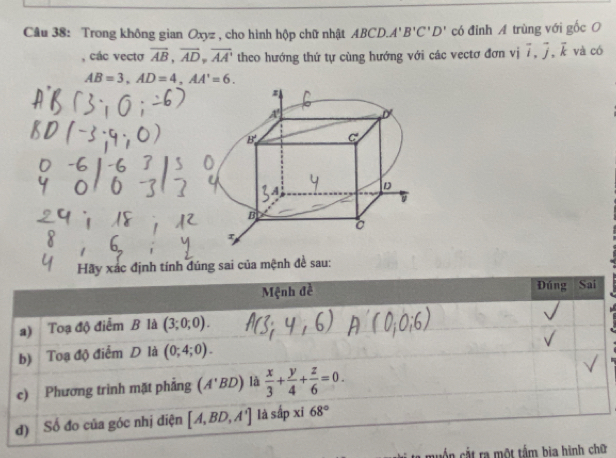 Câu 38: Trong không gian Oxyz , cho hình hộp chữ nhật ABCD.A'B'C'D' có đỉnh A trùng với gốc O
, các vectơ AB , AD , AA' theo hướng thứ tự cùng hướng với các vectơ đơn vị i , j , k và có
AB = 3, AD = 4, AA' = 6.
A'B (3; 0; -6)
BD (-3; 4; 0)
0 -6 | -6 3 | 3 0
4 0 | 0 -3 | 3 4
24 ; 18 ; 12
8 ; 6 ; 4
4
z
A'
6
D'
B'
C'
3 A
4
D
y
B
C
x
Hãy xác định tính đúng sai của mệnh đề sau:
Mệnh đề Đúng Sai
a) Toạ độ điểm B là (3;0;0). A(3; 4, 6) A'(0,0;6) ✓
b) Toạ độ điểm D là (0;4;0). ✓
c) Phương trình mặt phẳng (A'BD) là x/3 + y/4 + z/6 = 0. ✓
d) Số đo của góc nhị diện [A, BD, A'] là sấp xỉ 68°
muốn cắt ra một tấm bìa hình chữ